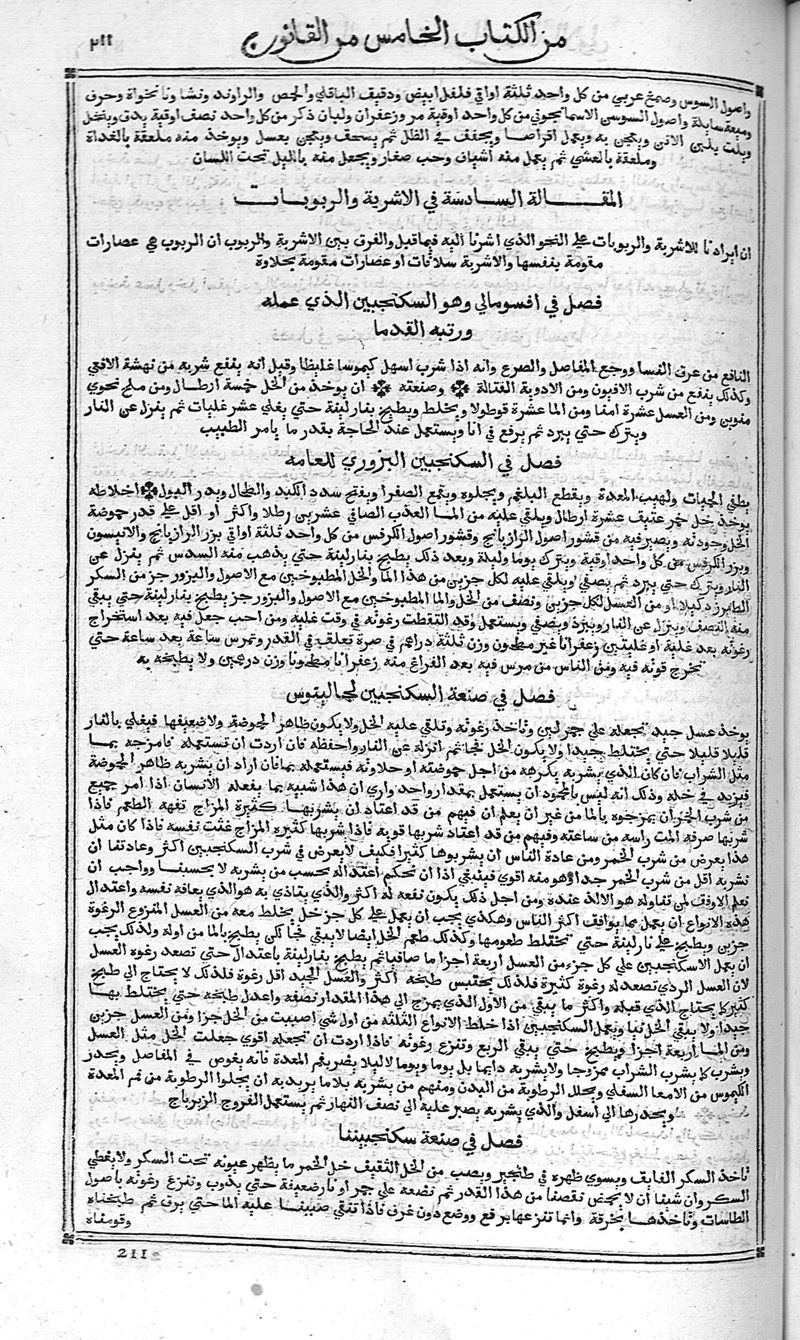 من الكتاب الخامس من القانون
٢١١
واصول السوس وصمغ عربي من كل واحد ثلثة اواقي فلفل ابيض ودقيق الباقلي والحمص والراوند ونشا ونانخواة وحرف
وميعة سايلة واصول السوسن الاسمانجوني من كل واحد اوقية مر وزعفران ولبان ذكر من كل واحد نصف اوقية يدق وينخل
ويلت بلبن الاتن ويعجن به ويعمل اقراصا ويجفف في الظل ثم يسحق ويعجن بعسل ويوخذ منه ملعقة بالغداة
وملعقة بالعشي ثم يعمل منه اشياف وحب صغار ويجعل منه بالليل تحت اللسان
المقالة السادسة في الاشربة والربوبات
ان ايرادنا للاشربة والربوبات علي النحو الذي اشرنا اليه فيما قبل والفرق بين الاشربة والربوب ان الربوب هي عصارات
مقومة بنفسها والاشربة سلاقات او عصارات مقومة بحلاوة
فصل في افسومالي وهو السكنجبين الذي عمله
ورتبه القدما
النافع من عرق النسا ووجع المفاصل والصرع وانه اذا شرب اسهل كيموسا غليظا وقيل انه ينفع شربه من نهشة الافعي
وكذلك ينفع من شرب الافيون ومن الادوية القتالة وصنعته ان يوخذ من الخل خمسة ارطال ومن ملح نحوي
منوين ومن العسل عشرة امنا ومن الما عشرة قوطولا ويخلط ويطبخ بنار لينة حتي يغلي عشر غليات ثم ينزل عن النار
ويترك حتي يبرد ثم يرفع في انا ويستعمل عند الحاجة بقدر ما يامر الطبيب
فصل في السكنجبين البزوري للعامه
يطفي الحميات ولهيب المعدة ويقطع البلغم ويجلوه ويقمع الصفرا ويفتح سدد الكبد والطحال ويدر البول اخلاطه
يوخذ خل خمر عتيق عشرة ارطال ويلقي عليه من الما العذب الصافي عشرين رطلا واكثر او اقل علي قدر حموضة
الخل وجودته ويصير فيه من قشور اصول الرازيانج وقشور اصول الكرفس من كل واحد ثلثة اواقي بزر الرازيانج والانيسون
وبزر الكرفس من كل واحد اوقية ويترك يوما وليلة وبعد ذلك يطبخ بنار لينة حتي يذهب منه السدس ثم ينزل عن
النار ويترك حتي يبرد ثم يصفي ويلقي عليه لكل جزين من هذا الما والخل المطبوخين مع الاصول والبزور جز من السكر
الطبرزد كيلا او من العسل لكل جزين ونصف من الخل والما المطبوخين مع الاصول والبزور جز يطبخ بنار لينة حتي يبقي
منه النصف وينزل عن النار ويبرد ويصفي ويستعمل وقد التقطت رغوته في وقت غليه ومن احب جعل فيه بعد استخراج
رغوته بعد غلية او غليتين زعفرانا غير مطحون وزن ثلثة دراهم في صرة تعلق في القدر وتمرس ساعة بعد ساعة حتي
تخرج قوته فيه ومن الناس من مرس فيه بعد الفراغ منه زعفرانا مطحونا وزن درهمين ولا يطبخه به
فصل في صنعة السكنجبين لجالينوس
يوخذ عسل جيد تجعله علي جمر لين وتاخذ رغوته وتلقي عليه الخل ولا يكون ظاهر الحموضة ولا ضعيفها فيغلي بالنار
قليلا قليلا حتي يختلط جيدا ولا يكون الخل فجا ثم انزله عن النار واحفظه فان اردت ان تستعمله فامزجه بما
مثل الشراب فان كان الذي يشربه يكرهه من اجل حموضته او حلاوته فيستعمله بما فان اراد ان يشربه ظاهر الحموضة
فيزيد في خله وذلك انه ليس بالمحمود ان يستعمل بمقدار واحد واري ان هذا شبيه بما يفعله الانسان اذا امر جميع
من شرب الخمر ان يمزجوه بالما من غير ان يعلم ان فيهم من قد اعتاد ان يشربها كثيرة المزاج تفهة الطعم فاذا
شربها صرفة المت راسه من ساعته وفيهم من قد اعتاد شربها قوية فاذا شربها كثيرة المزاج غثت نفسه فاذا كان مثل
هذا يعرض من شرب الخمر ومن عادة الناس ان يشربوها كثيرا فكيف لا يعرض في شرب السكنجبين اكثر وعادتنا ان
نشربه اقل من شرب الخمر جدا وهو منه اقوي فينبغي اذا ان تحكم اعتداله بحسب من يشربه لا بحسبنا وواجب ان
نعلم الاوفق لمن تناوله هو الالذ عنده ومن اجل ذلك يكون نفعه له اكثر والذي يتاذي به هو الذي يعافه نفسه واعتدال
هذه الانواع ان يعمل مما يوافق اكثر الناس وهكذي يجب ان يعمل علي كل جز خل يخلط معه من العسل المنزوع الرغوة
جزين ويطبخ علي نار لينة حتي تختلط طعومها وكذلك طعم الخل ايضا لا يبقي فجا لكن يطبخ بالما من اوله ولذلك يجب
ان يعمل الاسكنجبين علي كل جزء من العسل اربعة اجزا ما صافيا ثم يطبخ بنار لينة باعتدال حتي تصعد رغوة العسل
لان العسل الردي تصعد له رغوة كثيرة فلذلك يحتبس طبخه اكثر والعسل الجيد اقل رغوة فلذلك لا يحتاج الي طبخ
كثير كما يحتاج الذي قبله واكثر ما يبقي من الاول الذي يمزج الي هذا المقدار نصفه واعدل طبخه حتي يختلط بها
جيدا ولا يبقي الخل نيا ويعمل السكنجبين اذا خلط الانواع الثلثة من اول شي اصبيت من الخل جزا ومن العسل جزين
ومن الما اربعة اجزا ويطبخ حتي يبقي الربع وتنزع رغوته فاذا اردت ان تجعله اقوي جعلت الخل مثل العسل
ويشرب كما يشرب الشراب ممزوجا ولا يشربه دايما بل يوما ويوما لا ليلا يضر بقم المعدة فانه يغوص في المفاصل ويحدر
الكيموس من الامعا السفلي ويحلل الرطوبة من البدن ومنهم من يشربه بلا ما يريد به ان يجلوا الرطوبة من فم المعدة
ويحدرها الي اسفل والذي يشربه يصبر عليه الي نصف النهار ثم يستعمل الفروج الزيرباج
فصل في صنعة سكنجبيننا
ناخذ السكر الفايق ويسوي ظهره في طنجير ويصب من الخل الثقيف خل الخمر ما يظهر عيونه تحت السكر ولا يغطي
السكر وان شينا ان لا يحمض نقصنا من هذا القدر ثم نضعه علي جمر او نار ضعيفة حتي يذوب وتنزع رغوته باصول
الطاسات وناخذها بخرقة وانما تنزعها برفع ووضع دون غرف فاذا تنقي صببنا عليه الما حتي يرق ثم طبخناه
وقومناه
211